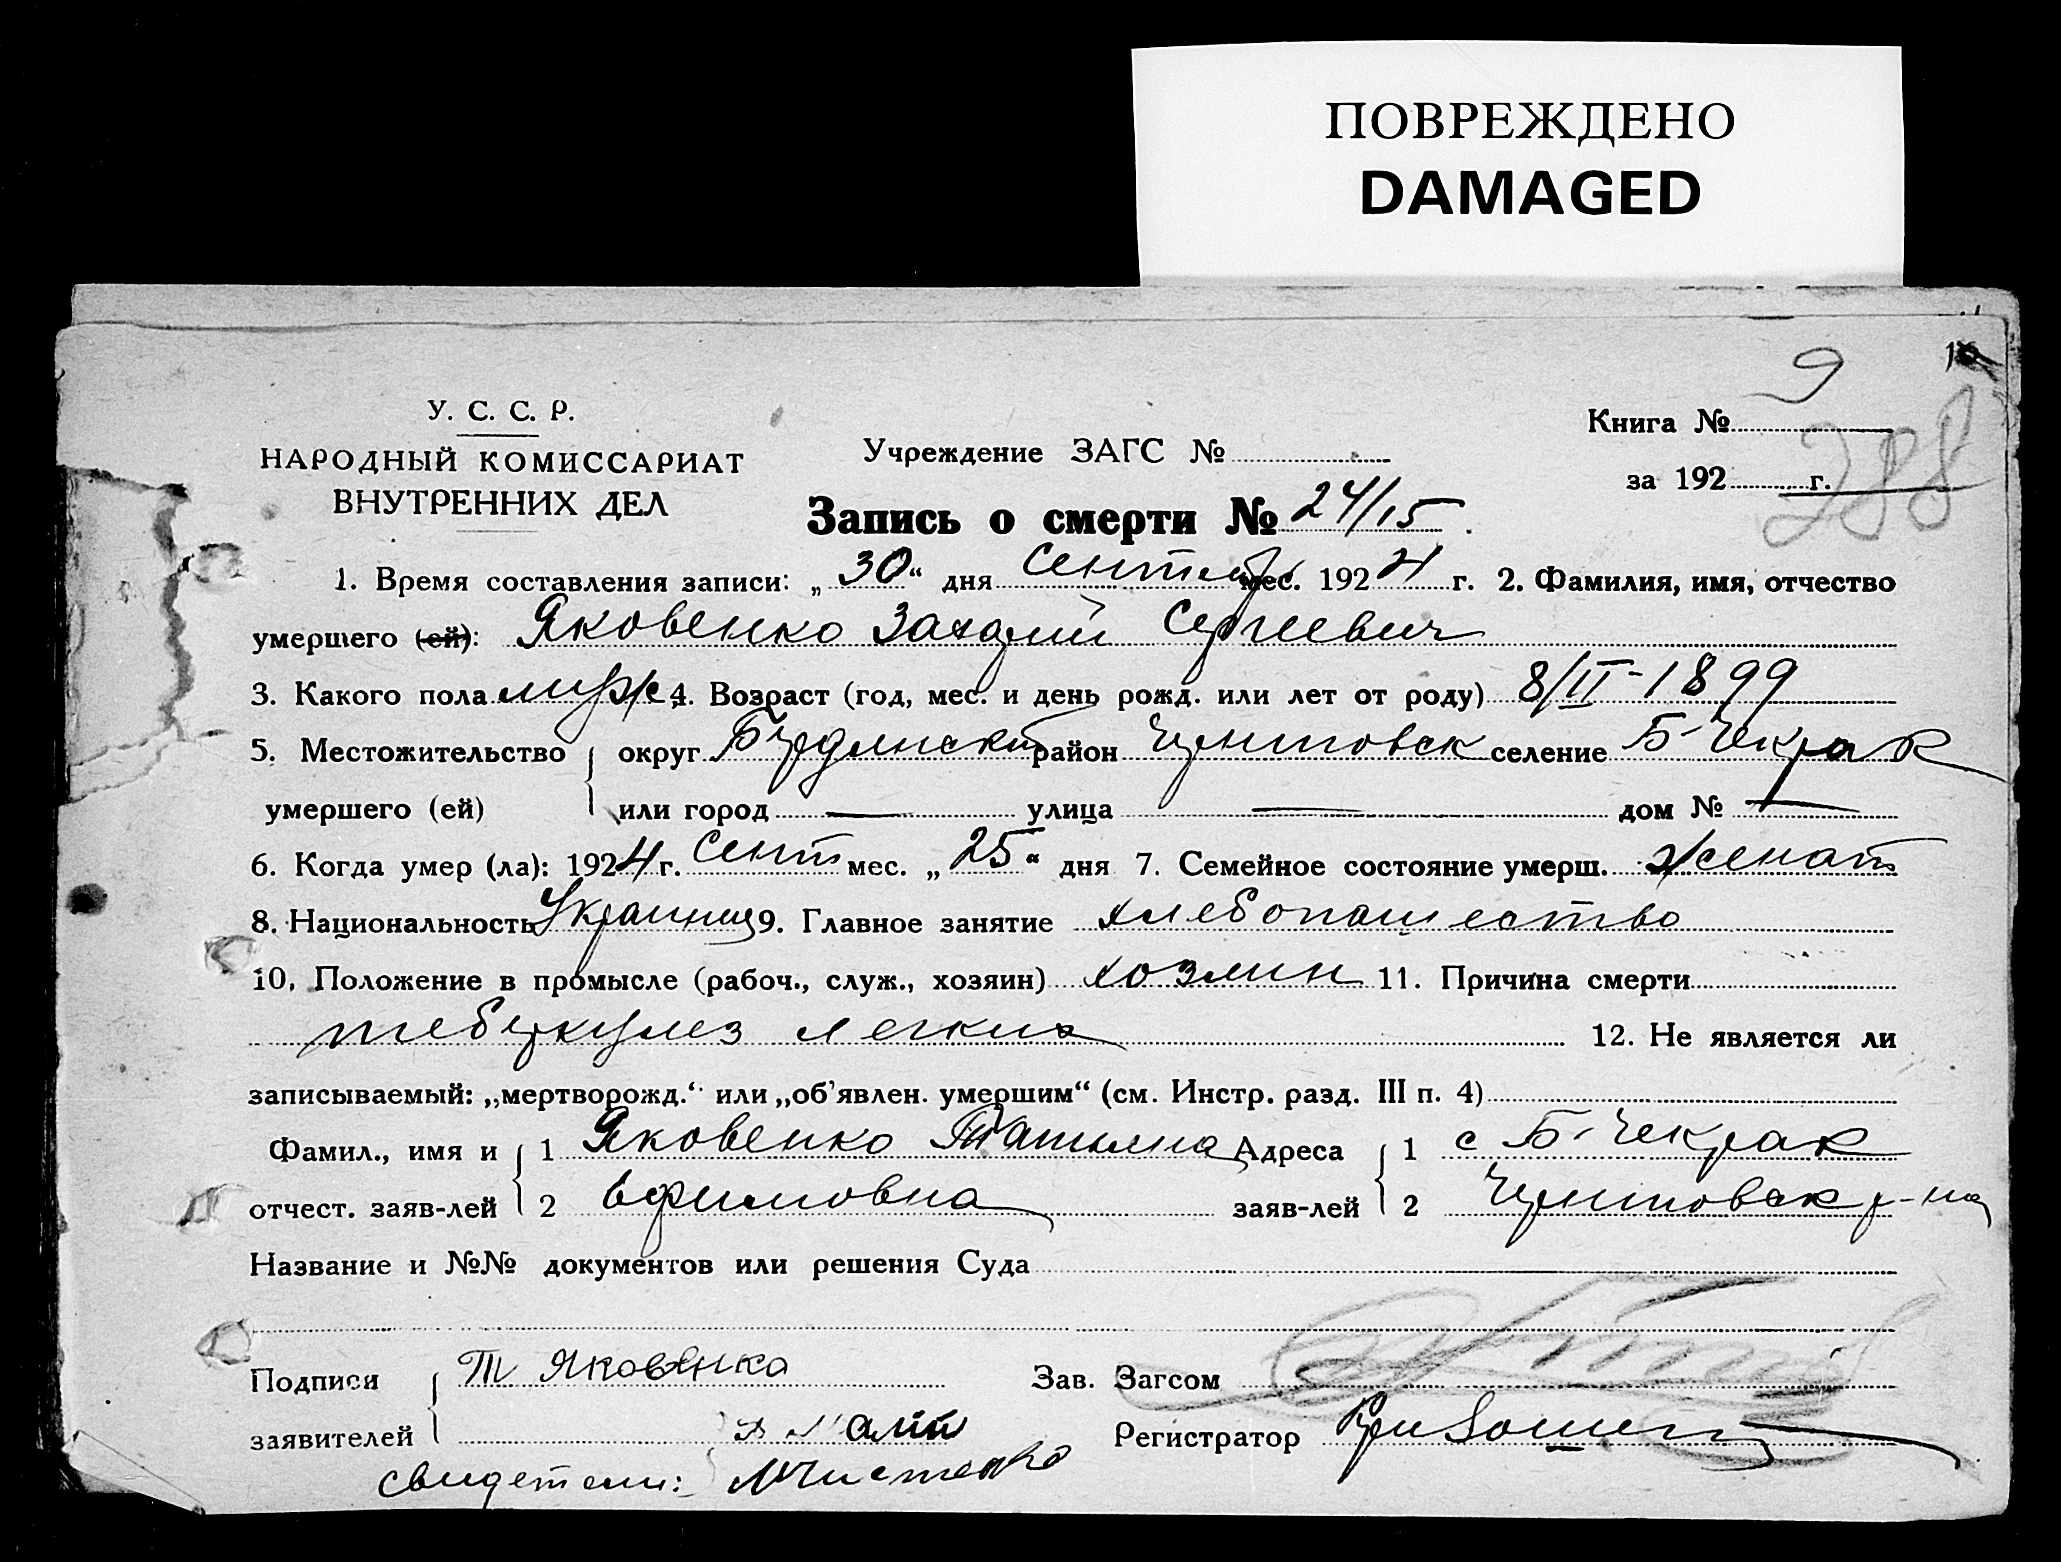 ПОВРЕЖДЕНО
DAMAGED
9
288
У. С. С. Р.
НАРОДНЫЙ КОМИССАРИАТ
ВНУТРЕННИХ ДЕЛ
Учреждение ЗАГС №
Книга №
за 192 г.
Запись о смерти № 24/15
1. Время составления записи: „30“ дня Сентябр мес. 1924 г. 2. Фамилия, имя, отчество
умершего (ей): Яковенко Захарий Сергеевич
3. Какого пола мужс 4. Возраст (год, мес. и день рожд. или лет от роду) 8/II-1899
5. Местожительство округ Бердянский район Черниговск селение Б-Чекрак
умершего (ей) или город — улица — дом № —
6. Когда умер (ла): 1924 г. Сент мес. „25“ дня 7. Семейное состояние умерш. женат
8. Национальность Украинец 9. Главное занятие хлебопашество
10. Положение в промысле (рабоч., служ., хозяин) хозяин 11. Причина смерти
теберкулез легких 12. Не является ли
записываемый: „мертворожд.“ или „об'явлен. умершим“ (см. Инстр. разд. III п. 4)
Фамил., имя и 1 Яковенко Татьяна Адреса 1 с Б-Чекрак
отчест. заяв-лей 2 Ефимовна заяв-лей 2 Черниговск р-на
Название и №№ документов или решения Суда
Подписи Т Яковенко Зав. Загсом
заявителей Регистратор
свидетели: